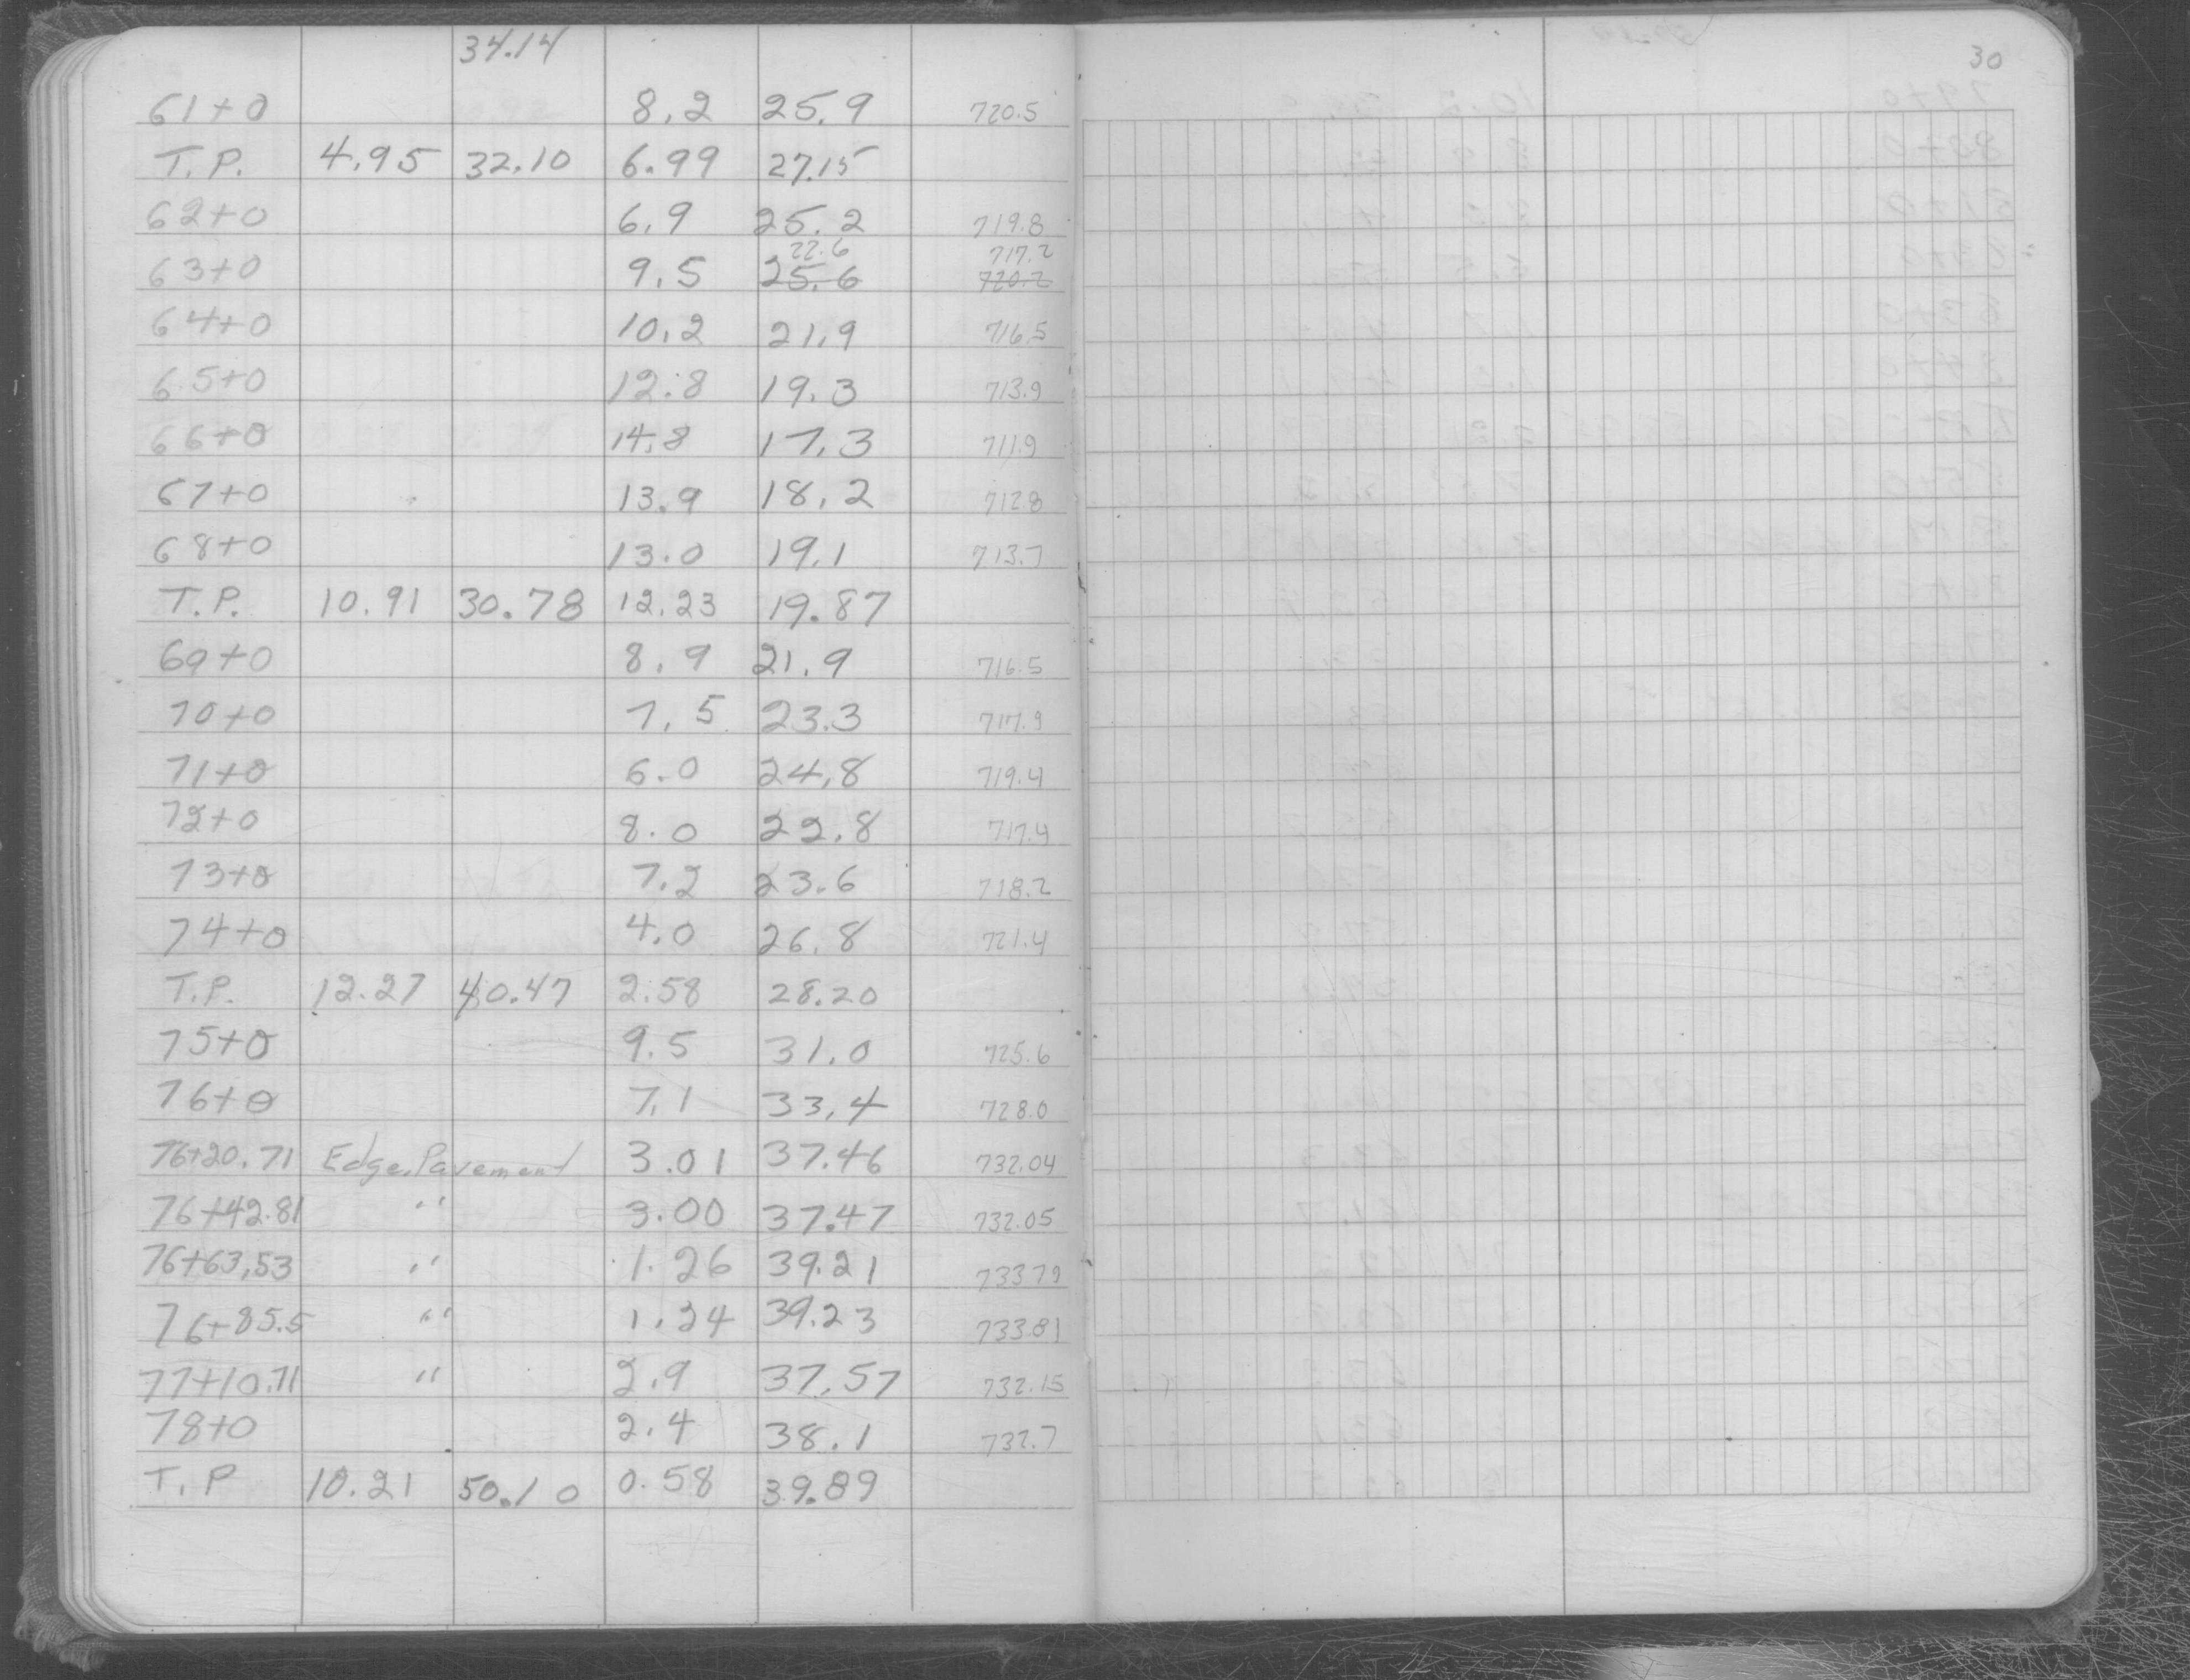 34.14
30
61+0 8.2 25.9 720.5
T.P. 4.95 32.10 6.99 27.15
62+0 6.9 25.2 719.8
22.6 717.2
63+0 9.5 25.6 720.2
64+0 10.2 21.9 716.5
65+0 12.8 19.3 713.9
66+0 14.8 17.3 711.9
67+0 13.9 18.2 712.8
68+0 13.0 19.1 713.7
T.P. 10.91 30.78 12.23 19.87
69+0 8.9 21.9 716.5
70+0 7.5 23.3 717.9
71+0 6.0 24.8 719.4
72+0 8.0 22.8 717.4
73+0 7.2 23.6 718.2
74+0 4.0 26.8 721.4
T.P. 12.27 40.47 2.58 28.20
75+0 9.5 31.0 725.6
76+0 7.1 33.4 728.0
76+20.71 Edge Pavement 3.01 37.46 732.04
76+42.81 " 3.00 37.47 732.05
76+63.53 " 1.26 39.21 733.79
76+85.5 " 1.24 39.23 733.81
77+10.71 " 2.9 37.57 732.15
78+0 2.4 38.1 732.7
T.P 10.21 50.10 0.58 39.89